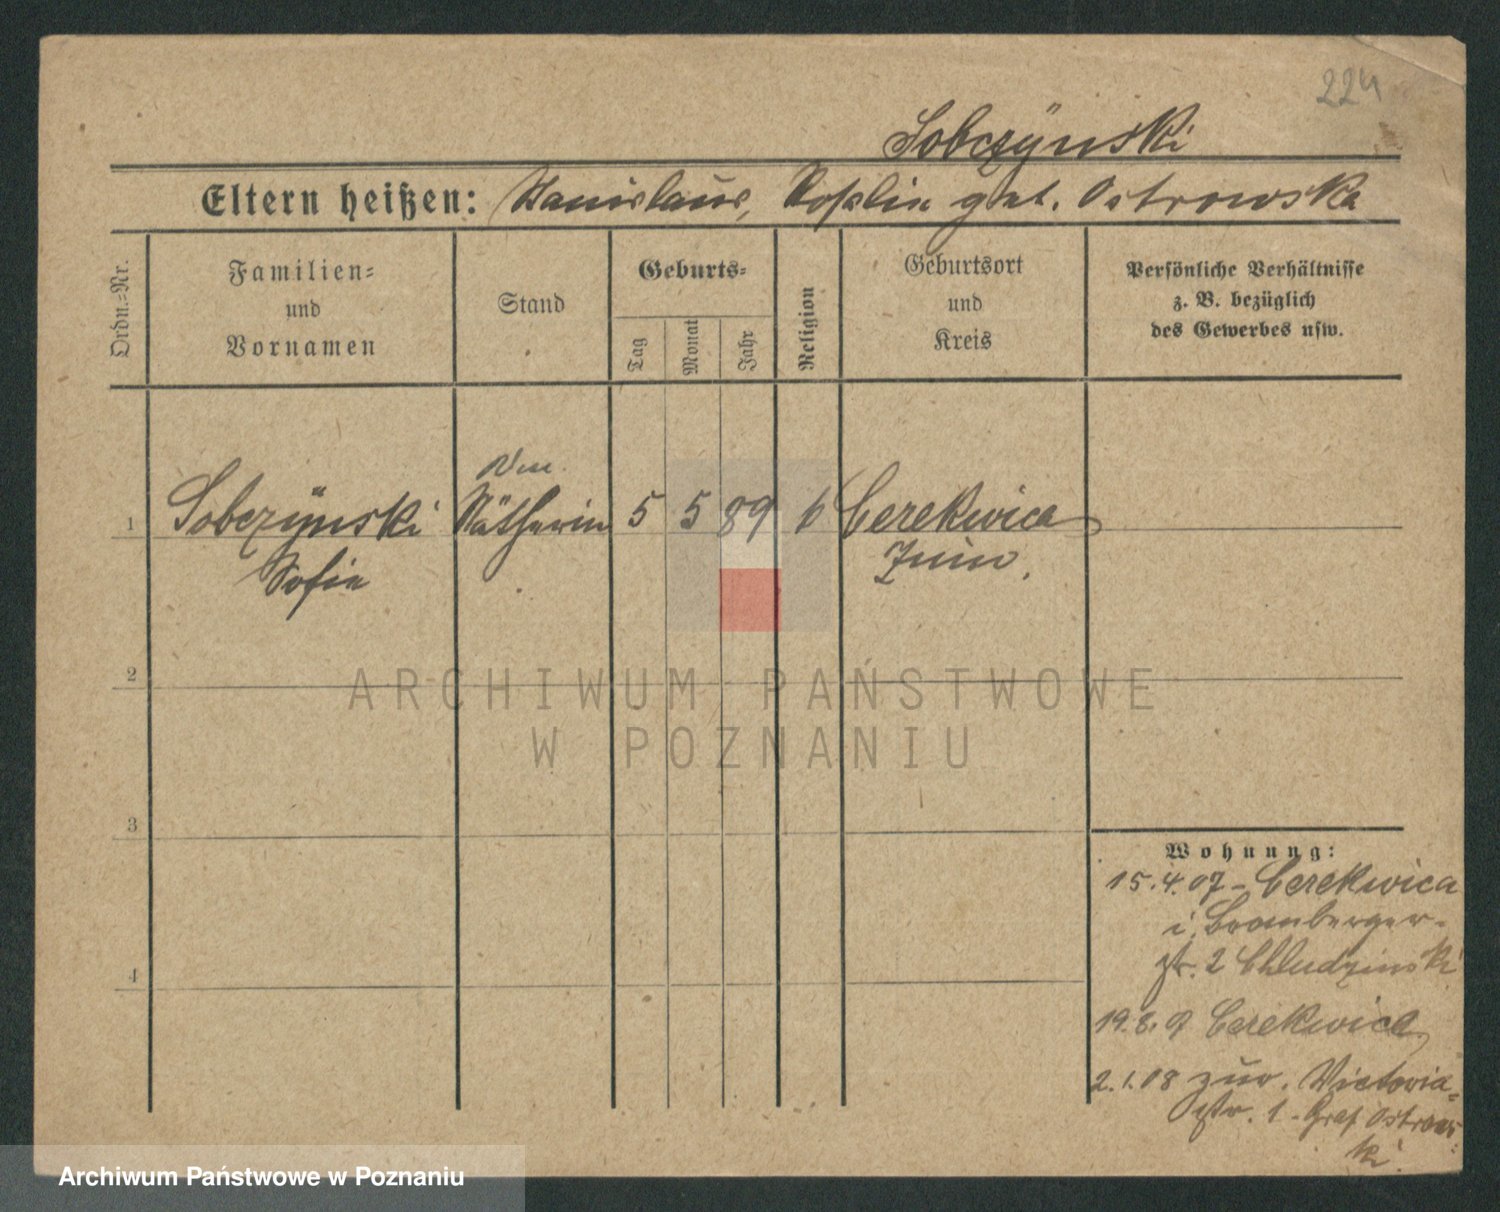 224
Sobczÿnski
Eltern heißen: Stanislaus, geb. Ostrowska
Ordn.=Nr.
Familien=
und
Vornamen
Stand
Geburts=
Tag
Monat
Jahr
Religion
Geburtsort
und
Kreis
Persönliche Verhältnisse
z. B. bezüglich
des Gewerbes usw.
1
Sobczÿnski
Sofie
Nätherin
5
5
89
Cerekwica
Znin.
2
3
4
Wohnung:
15.4.07 - Cerekwica
i. Bromberger-
str. 2 Chludzinski
19.8.07 Cerekwica
2.1.08 zur. Victoria-
str. 1 - Graf Ostrows-
ki.
ARCHIWUM PAŃSTWOWE
W POZNANIU
Archiwum Państwowe w Poznaniu